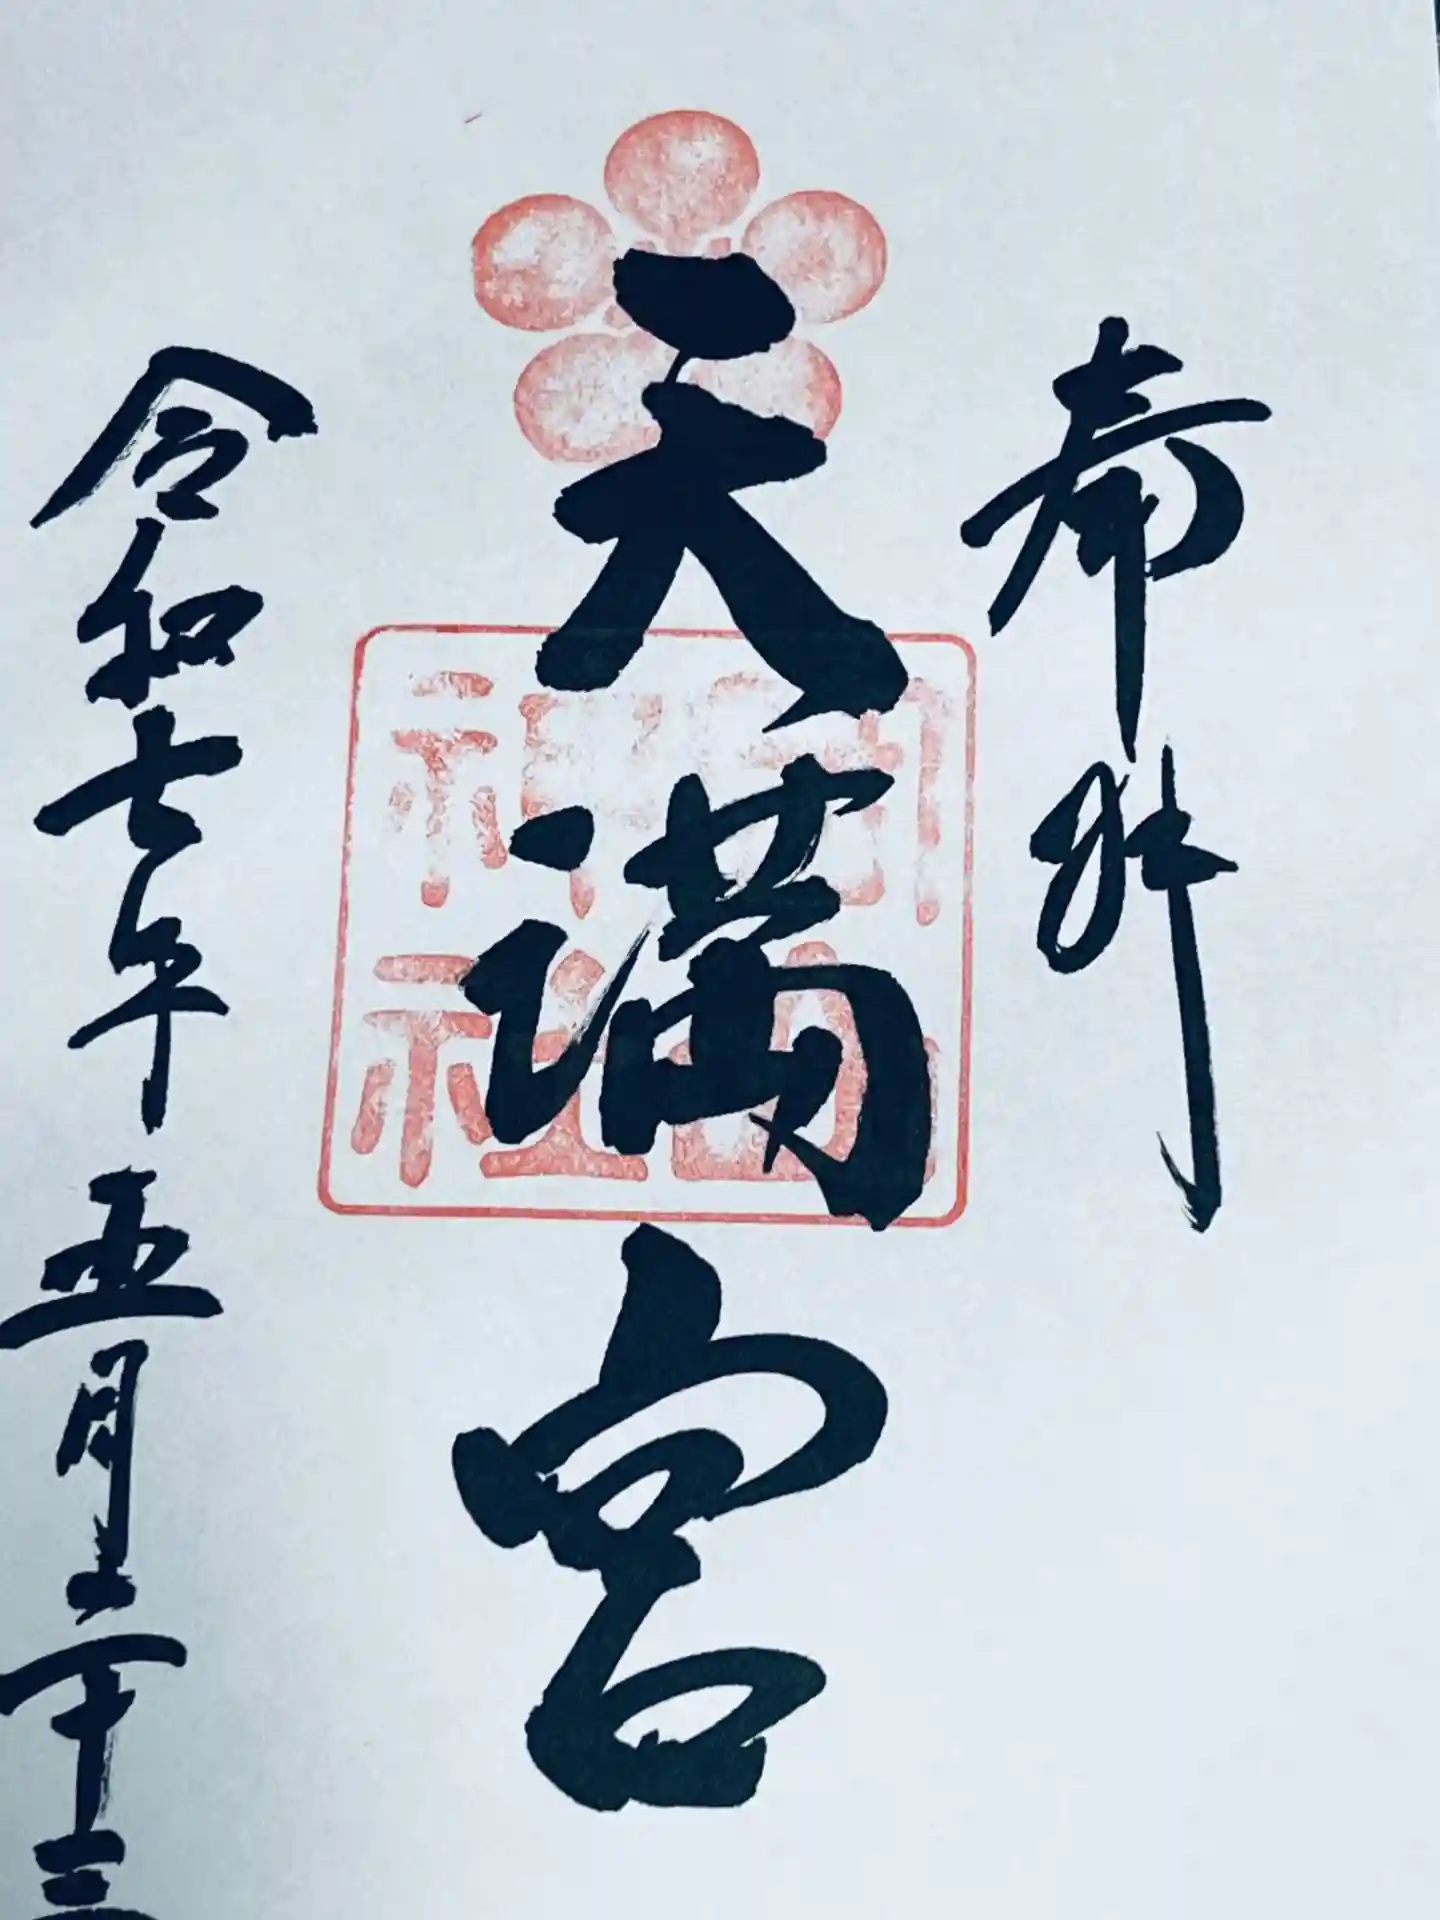 奉拝
天満宮
神社
令和七年五月二十三